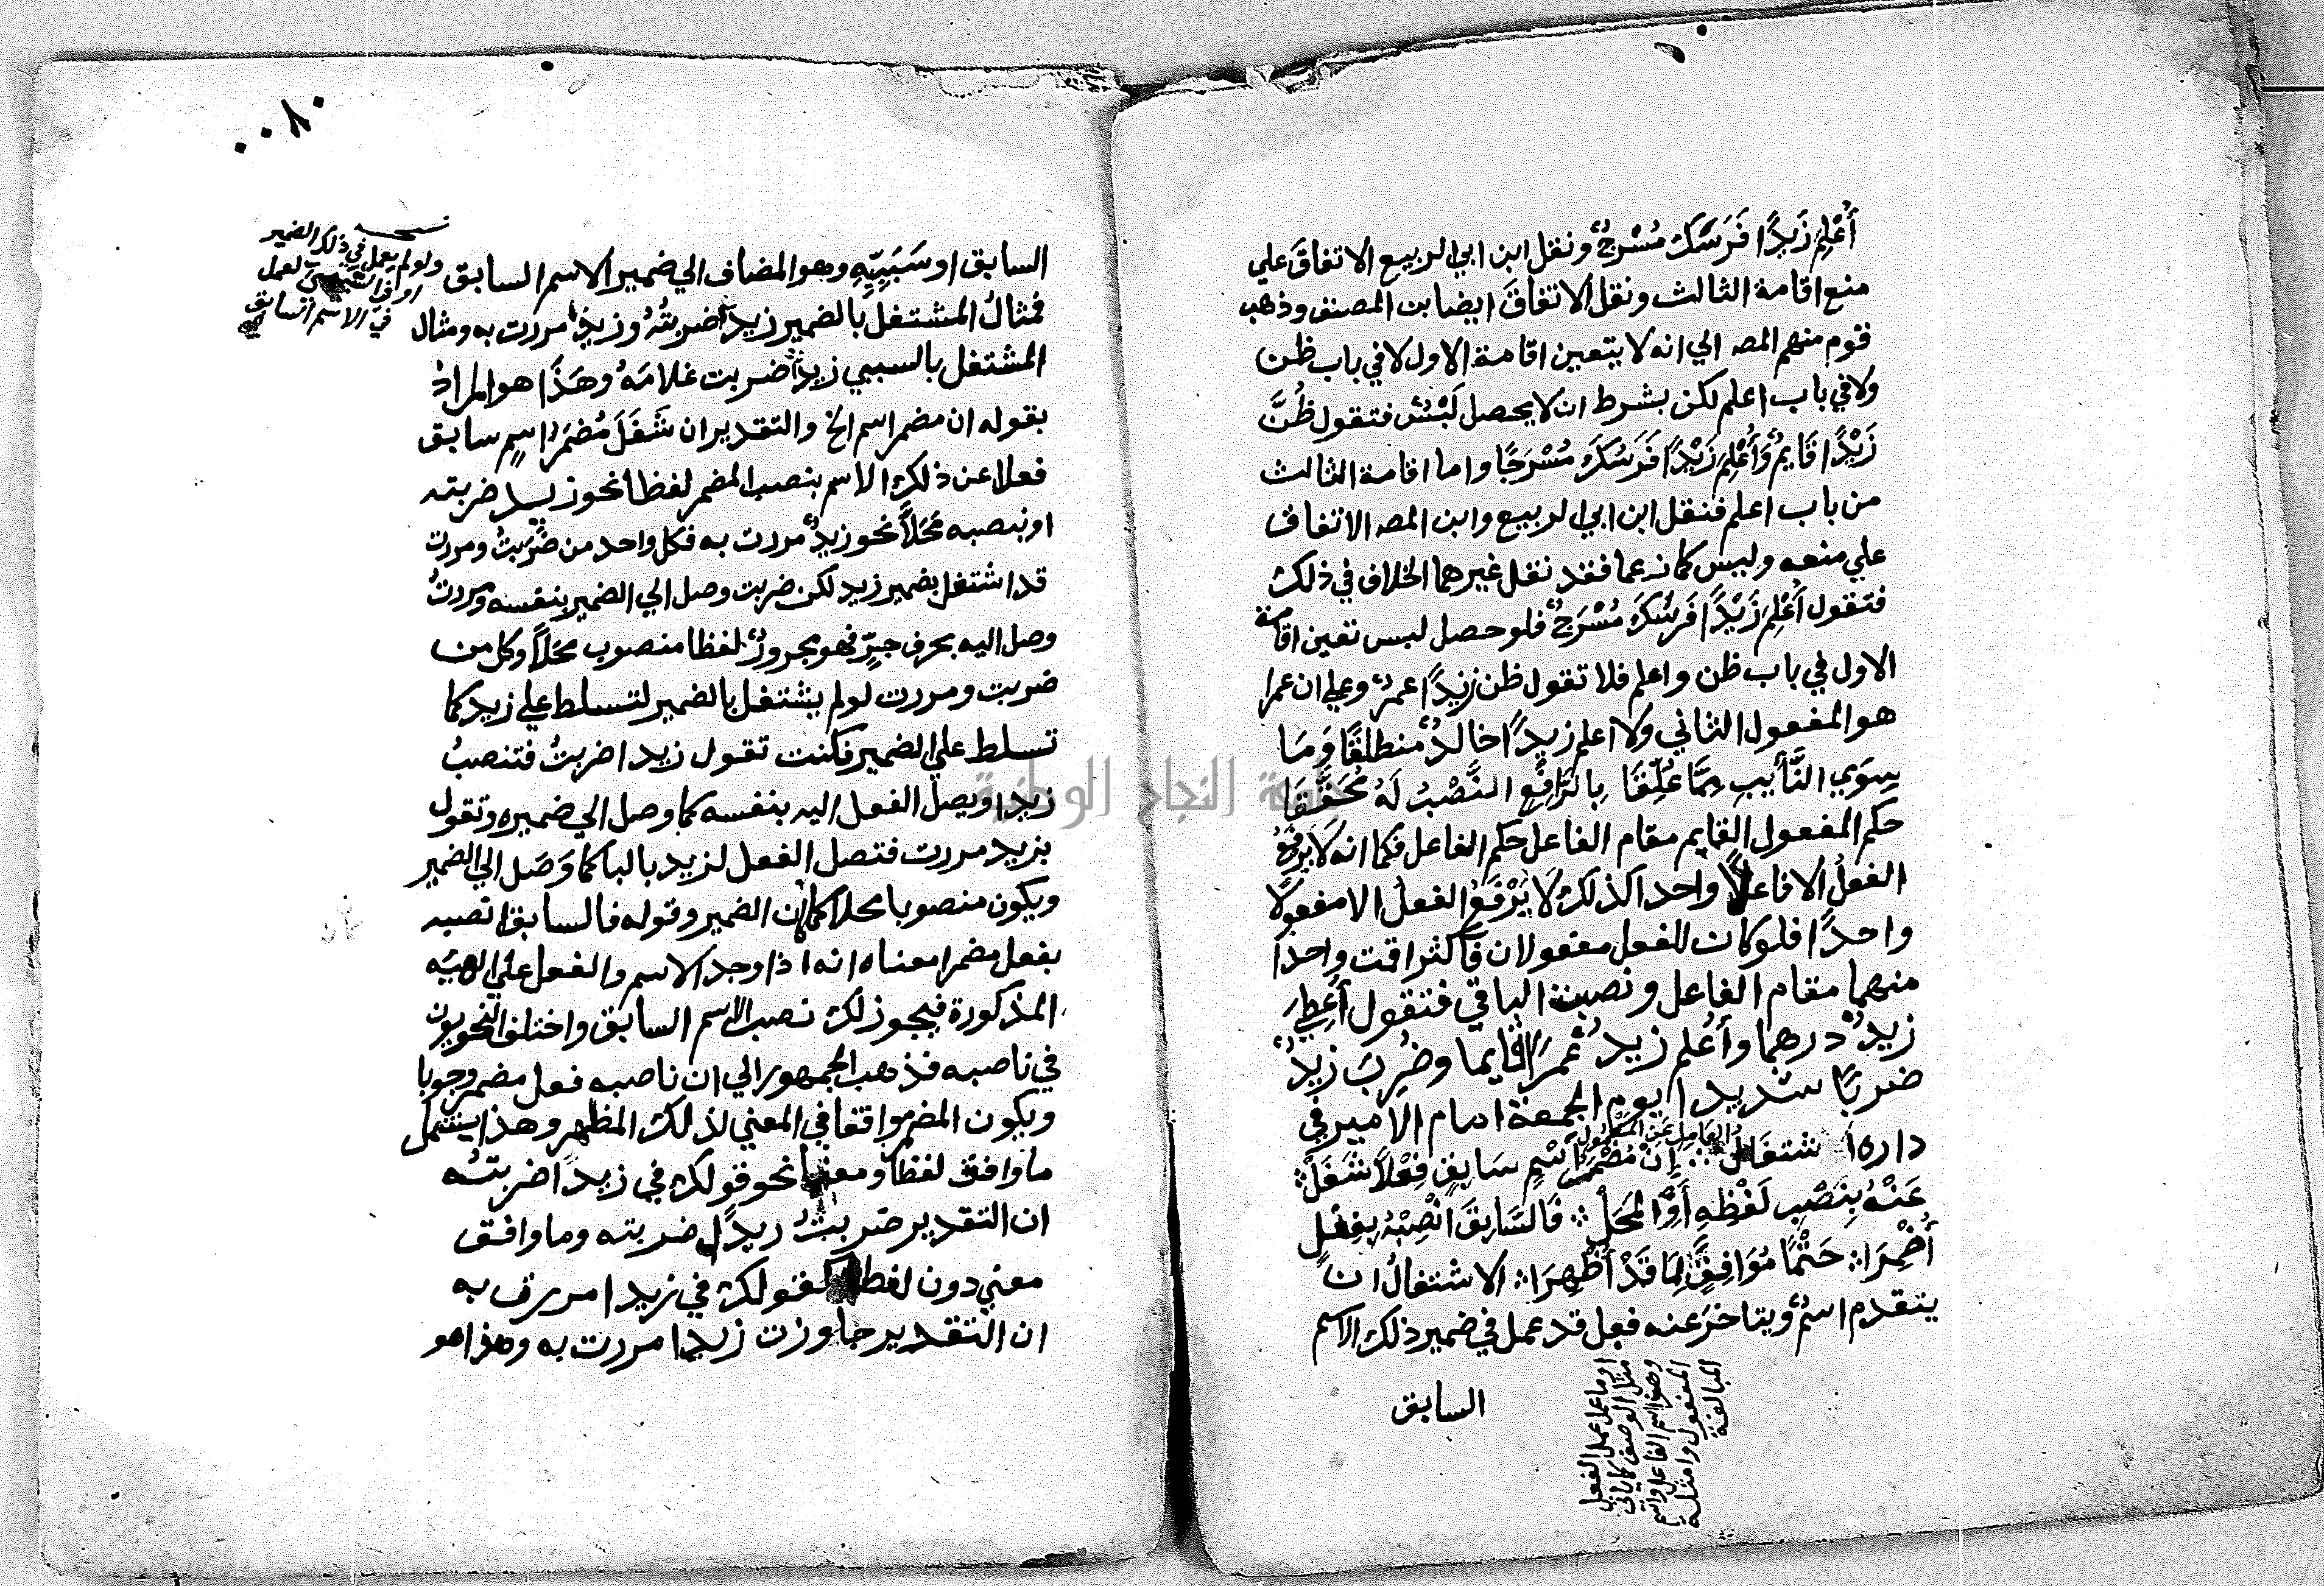 أُعْلِمَ زَيْدًا فَرَسَكَ مُسْرَجٌ ونقل ابن ابي الربيع الاتفاقَ علي
منع اقامة الثالث ونقل الاتفاقَ ايضا بن المصنف وذهب
قوم منهم المصـ الي انه لا يتعين اقامة الاول لا في باب ظن
ولا في باب اعلم لكن بشرط ان لا يحصل لَبْسٌ فتقول ظُنَّ
زَيْدًا قَايمٌ وَأُعْلِمَ زَيْدًا فَرَسُكَ مُسْرَجًا واما اقامة الثالث
من باب اعلم فنقل ابن ابي الربيع وابن المصـ الاتفاق
علي منعه وليس كما زعما فقد نقل غيرهما الخلاف في ذلك
فتقول أُعْلِمَ زَيْدًا فَرَسَكَ مُسْرَجٌ فلو حصل لبس تعين اقامة
الاول في باب ظن واعلم فلا تقول ظن زيدًا عمرٌو علي ان عمرا
هو المفعول الثاني ولا اعلم زيدًا خالدٌ منطلقًا وَمَا
سِوَي النَّايِبِ مِمَّا عُلِّقَا بِالرَّافِعِ النَّصْبُ لَهُ مُحَقَّقَا
حكم المفعول القايم مقام الفاعل حكم الفاعل فكما انه لَا يرفعُ
الفعلُ الا فاعلًا واحدا كذلك لَا يَرْفَعُ الفعلُ الا مفعولًا
واحدًا فلو كان للفعل مفعولان فاكثر اقمت واحدا
منهما مقام الفاعل ونصبت الباقي فتقول أُعطِيَ
زيدٌ درهما وأُعْلم زيدٌ عَمرًا قايما وضُرِبَ زيدٌ
ضربًا شديدا يوم الجمعة امام الامير في
داره اشتغال العامل عن المعمول إِنْ مُضْمَرُ اسْمٍ سَابِقٍ فِعْلًا شَغَلْ
عَنْهُ بِنَصْبِ لَفْظِهِ أَوِ الْمَحَلْ فَالسَّابِقَ انْصِبْهُ بِفِعْلٍ
أُضْمِرَا حَتْمًا مُوَافِقٍ لِمَا قَدْ أُظْهِرَا الاشتغالُ ان
يتقدم اسمٌ ويتاخرَ عنه فعل قد عمل في ضمير ذلك الاسم
السابق
او ما عمل عمل الفعل
مثل الوصف كما ياتي
وهو اسم الفاعل واسم
المفعول وامثلة
المبالغة
السابق او سَبَبِيِّهِ وهو المضاف الي ضمير الاسم السابق
نسخه
ولو لم يعمل في ذلك الضمير
او في السببي لعمل
في الاسم السابق
فمثالُ المشتغل بالضمير زيدًا ضربتُهُ وزيدًا مررت به ومثال
المشتغل بالسببي زيدًا ضربت غلامَهُ وهَذَا هو المرادُ
بقوله ان مضمر اسم الخ والتقدير ان شَغَلَ مُضمَرُ اسمٍ سابق
فعلا عن ذلك الاسم بنصب المضمر لفظا نحو زيد ضربته
او بنصبه مَحَلًّا نحو زيدٌ مررت به فكل واحد من ضَرَبتُ ومررت
قد اشتغل بضمير زيد لكن ضربت وصل الي الضمير بنفسه ومررتُ
وصل اليه بحرف جرٍّ فهو مجرورٌ لفظا منصوب محلًا وكل من
ضربت ومررت لو لم يشتغل بالضمير لتسلط علي زيد كما
تسلط علي الضمير فكنت تقول زيدا ضربتُ فتنصبُ
زيدا ويصل الفعل اليه بنفسه كما وصل الي ضميره وتقول
بزيد مررت فتصل الفعل لزيد بالبا كما وَصَل الي الضمير
ويكون منصوبا محلا كما ان الضمير وقوله فالسابق انصبه
بفعل مضمرا معناه انه اذا وجد الاسم والفعل علي الهيه
المذكورة فيجوز لك نصب الاسم السابق واختلف النحويون
في ناصبه فذهب الجمهور الي ان ناصبه فعل مضمر وجوبا
ويكون المضمر موافقا في المعني لذلك المظهر وهذا يشمل
ما وافق لفظا ومعني نحو قولك في زيدًا ضربتُه
ان التقدير ضربتُ زيدًا ضربته وما وافق
معني دون لفظ كقولك في زيدا مررت به
ان التقدير جاوزت زيدا مررت به وهذا هو
٠٠٨٠
جامعة النجاح الوطنية